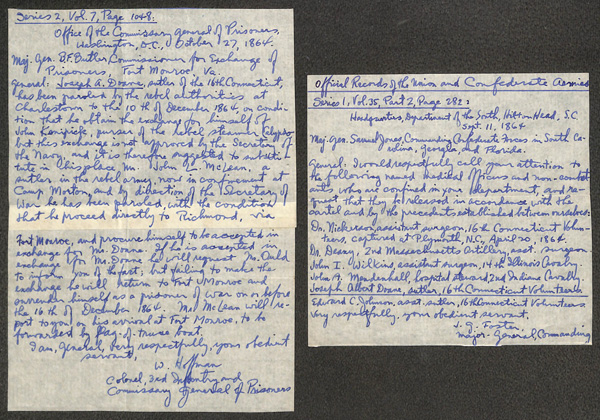 Series 2, Vol. 7, Page 1048.
Office of the Commissary General of Prisoners,
Washington, D.C., October 27, 1864.
Maj. Gen. B.F. Butler Commissioner for Exchange of
Prisoners, Fort Monroe, Va.
General: Joseph A. Doane, sutler of the 16th Connecticut,
has been paroled by the rebel authorities at
Charlestown to the 10th of December 1864, on condi-
tion that he obtain the exchange for himself of
John purser of the rebel steamer Calypso,
but this exchange is not approved by the Secretary of
the Navy, and it is therefore suggested to substi-
tute in his place Mr. John L. McLean,
sutler in the rebel army, now in confinement at
Camp Morton, and by direction of the Secretary of
War he has been paroled, with the condition
that he proceed directly to Richmond, via
Fort Monroe, and procure himself to be accepted in
exchange for Mr. Doane. If he is accepted in
exchange for Mr. Doane he will request Mr. Ould
to inform you of the fact; but failing to make the
exchange he will return to Fort Monroe and
surrender himself as a prisoner of war on or before
the 16th of December 1864. Mr. McLean will re-
port to you on his arrival at Fort Monroe, to be
forwarded by flag-of-truce boat.
I am, General, very respectfully, your obedient
servant,
W. Hoffman
Colonel, 3rd Infantry and
Commissary General of Prisoners
Official Records of the Union and Confederate Armies
Series 1, Vol. 35, Part 2, Page 282:
Headquarters, Department of the South, Hilton Head, S.C.
Sept. 11, 1864
Maj. Gen. Samuel Jones, Commanding Confederate Forces in South Ca-
rolina, Georgia, and Florida.
General: I would respectfully call your attention to
the following named medical officers and non-combat-
ants who are confined in your department, and re-
quest that they be released in accordance with the
cartel and by the precedent established between ourselves:
Dr. Nickerson, assistant surgeon, 16th Connecticut Volun-
teers, captured at Plymouth, N.C., April 20, 1864.
Dr. 2nd Massachusetts Artillery, asst. surgeon
John I. Wilkins assistant surgeon, 14th Illinois Cavalry
John A. Mendenhall hospital steward 2nd Indiana Cavalry
Joseph Albert Doane, sutler, 16th Connecticut Volunteers
Edward C. Johnson, asst. sutler, 16th Connecticut Volunteers
Very respectfully, your obedient servant,
J. G. Foster
Major-General, Commanding